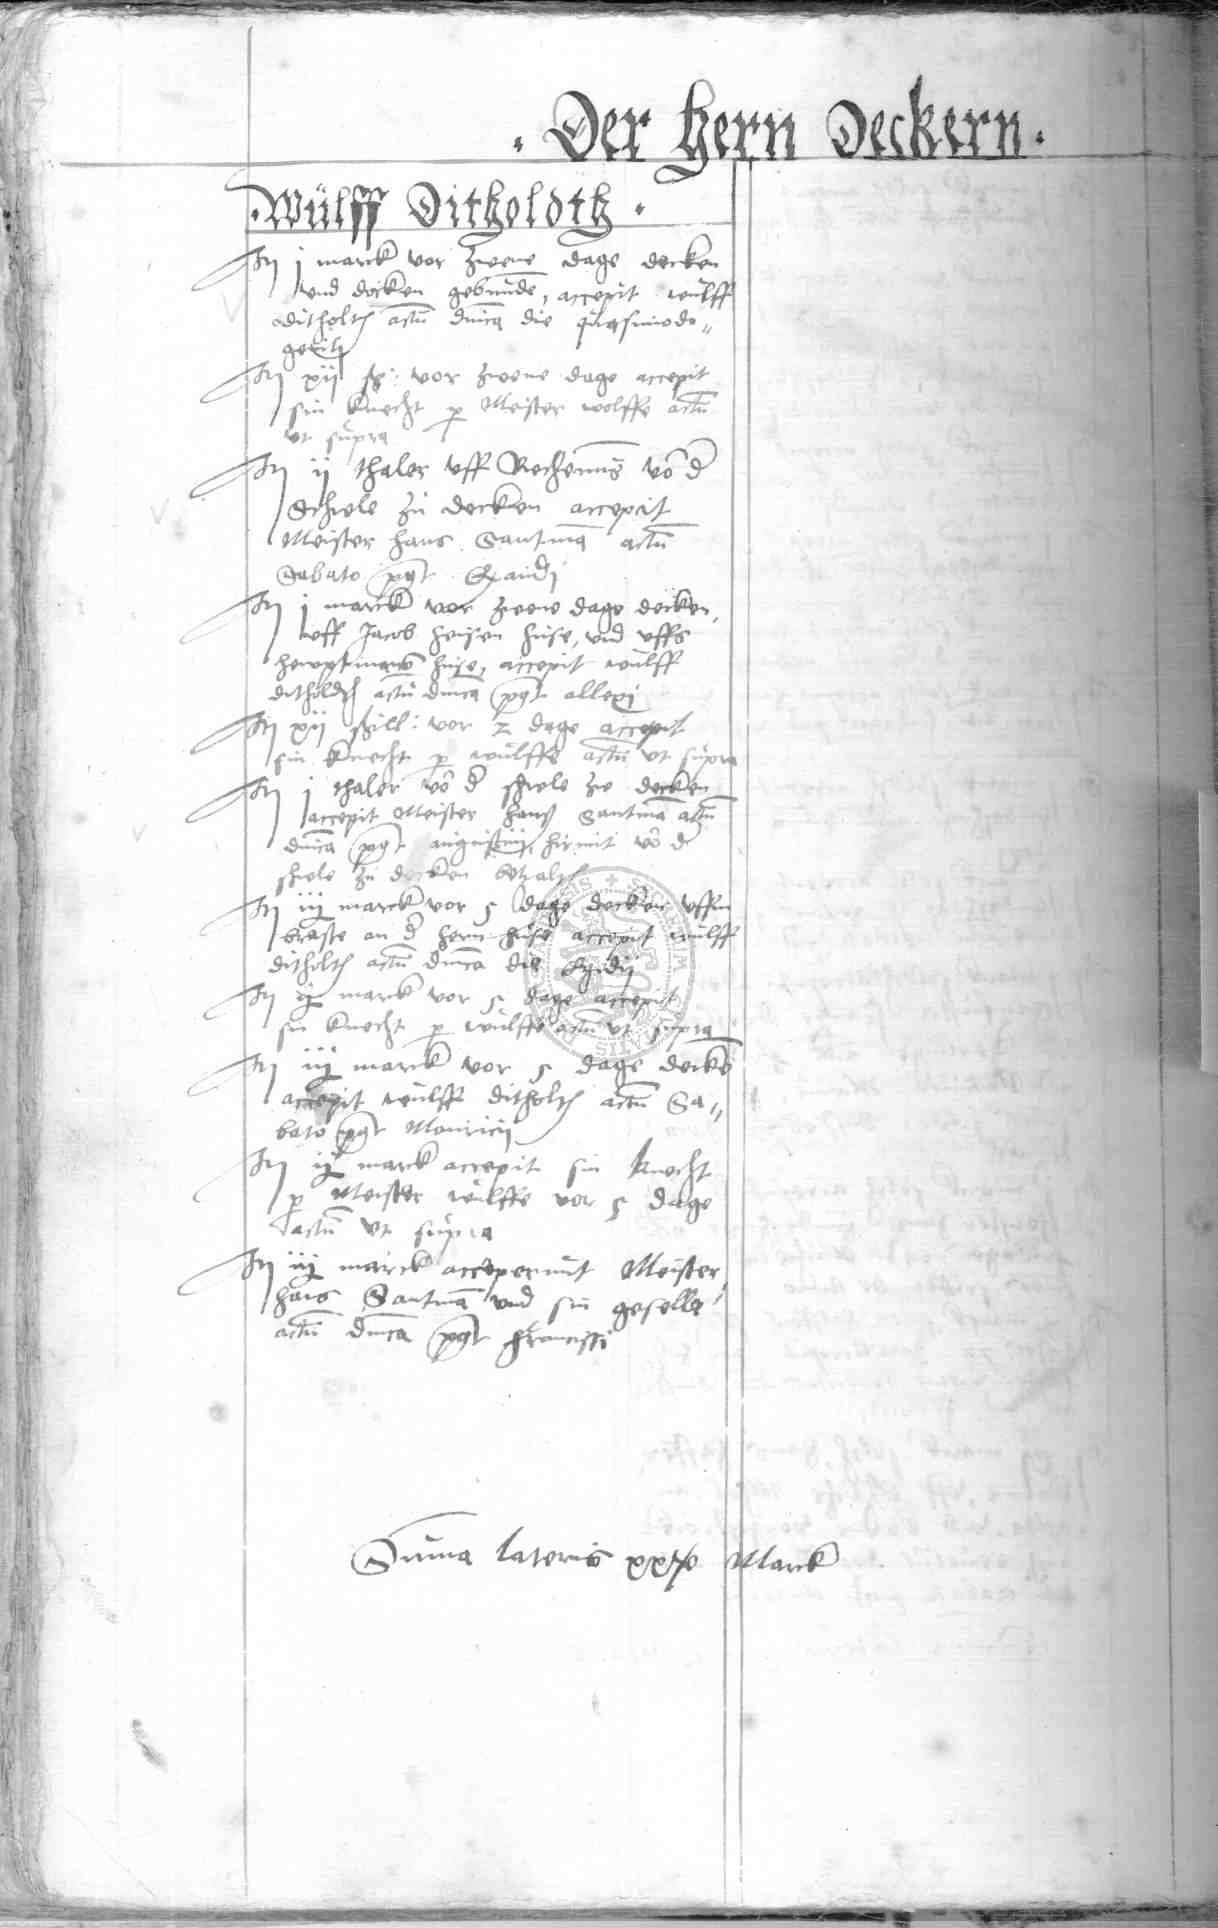 · Der hern Deckern ·
· Wülff Ditholdth ·
It j marck vor zwene dage decken
vnd docken gebunde, accepit wülff
ditholth actū dnīca die quasimodo„
geniti
It xij ß: vor zwene dage accepit
sin knecht p Meister wolffe actū
vt supra
It ij thaler vff Rechenūg vō d
Schiele zu decken accepit
Meister hans Santmā actū
Sabato pqt Exaudj
It j marck vor zwene dage decken,
vff Jacob henßen huse, vnd vffs
hewptmans huse, accepit wülff
ditholdth actū dnīca pqt allexj
It xij schill: vor 2 dage accepit
sin knecht p wülffe actū vt supra
It j thaler vō d schiele zu decken
accepit Meister hans Santmā actū
dnīca pqt augustinj, hirmit vō d
schiele zu decken betzalt
It iij marck vor 5 dage decken vffm
an d hern huse accepit wülff
ditholth actū dnīca die Egidij
It ij marck vor 5 dage accepit
sin knecht p wülffe actū vt supra
It iij marck vor 5 dage deckē
accepit wülff ditholth actū Sa„
bato pqt Mauricij
It ij marck accepit sin knecht
p Meister wülffe vor 5 dage
actū vt supra
It iij marck acceperunt Meister
hans Santmā vnd sin geselle
actū dnīca pqt francisci
Suma lateris Marck